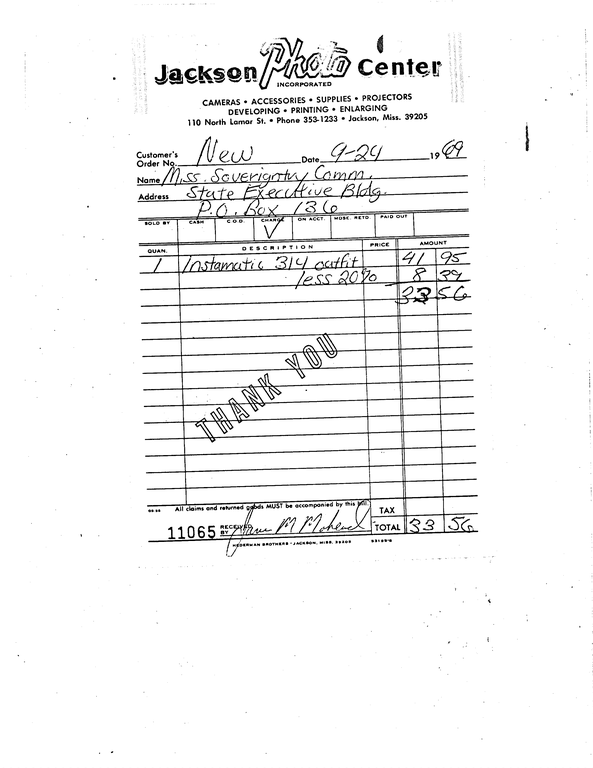 Jackson Photo Center
INCORPORATED
CAMERAS • ACCESSORIES • SUPPLIES • PROJECTORS
DEVELOPING • PRINTING • ENLARGING
110 North Lamar St. • Phone 353-1233 • Jackson, Miss. 39205
Customer's Order No. New Date 9-24 1969
Name Miss. Soverignty Comm.
Address State Executive Bldg.
P.O. Box 136
SOLD BY CASH C.O.D. CHARGE ON ACCT. MDSE. RETD. PAID OUT
✓
QUAN. DESCRIPTION PRICE AMOUNT
1 Instamatic 314 outfit 41 95
less 20% 8 39
33 56
THANK YOU
All claims and returned goods MUST be accompanied by this bill. TAX
11065 RECEIVED BY M TOTAL 33 56
HEDERMAN BROTHERS - JACKSON, MISS. 39205